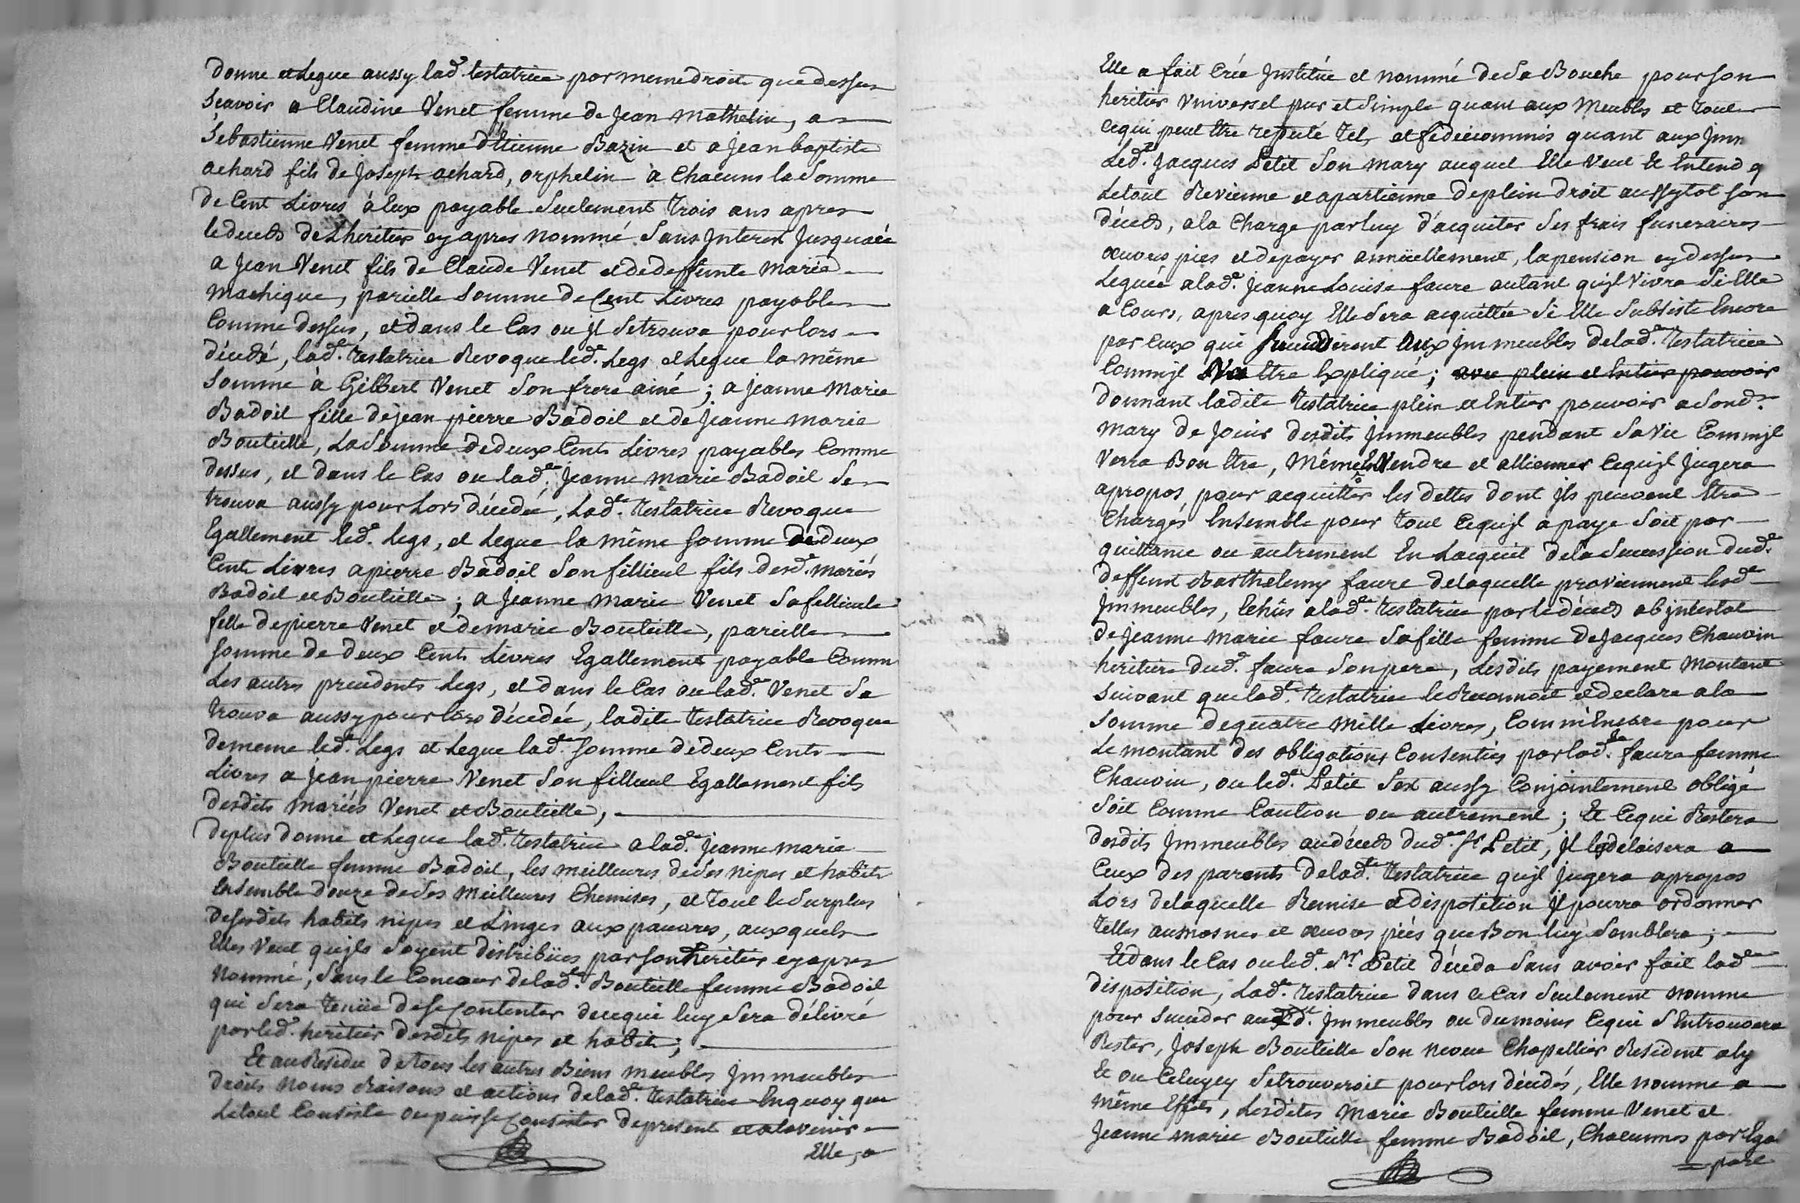 donne et Legue aussy lad.e testatrice par meme droit que dessus
sçavoir a Claudine Venet femme de Jean Mathelin, a
Sebastienne Venet femme d'Etienne Bazin et a jean baptiste
achard fils de Joseph achard, orphelin à Chacuns la Somme
de Cent Livres à Eux payable Seulement trois ans apres
le deceds de L'heritier cy apres nommé Sans Interest Jusqu'a
a Jean Venet fils de Claude Venet et de deffunte Marie
Machique, pareille Somme de Cent Livres payable
Comme dessus, et dans le Cas ou il Se trouva pour lors
décédé, lad.e testatrice Revoque led.t Legs et Legue la même
Somme à Gilbert Venet Son frere ainé ; a jeanne Marie
Badoil fille de jean pierre Badoil et de Jeanne Marie
Bouteille, La Somme de deux Cents Livres payables Comme
dessus, et dans le Cas ou lad.e Jeanne Marie Badoil Se
trouva aussy pour Lors décédée, Lad.e testatrice Revoque
Egallement led.t Legs, et Legue la même Somme de deux
Cents Livres a pierre Badoil Son fillieul fils desd.s Mariés
Badoil et Bouteille ; a Jeanne Marie Venet Sa fillieule
fille de pierre Venet et de marie Bouteille, pareille
Somme de deux Cents Livres Egallement payable Comme
Les autres precedents Legs, et dans le Cas ou lad.e Venet Se
trouva aussy pour lors décédée, ladite testatrice Revoque
de meme led.t Legs et Legue lad.e Somme de deux Cents
Livres a jean pierre Venet Son fillieul Egallement fils
desdits Mariés Venet et Bouteille,
de plus donne et Legue lad.e testatrice a lad.e jeanne marie
Bouteille femme Badoil, les meilleures de Ses nipes et habits
Ensemble douze de Ses Meilleures Chemises, et tout le Surplus
de Sesdits habits nipes et Linges aux pauvres, auxquels
Elles Veut qu'ils Soyent distribües par Son heritier cy apres
nommé, Sans le Concour de lad.e Bouteille femme Badoil
qui Sera tenüe de Se Contenter de ce qui luy Sera délivré
par led.t heritier desdits nipes et habits ;
Et au Residu de tous les autres Biens meubles Immeubles
droits noms Raisons et actions de lad.e testatrice En quoy que
Le tout Consiste ou puisse Consister de present et a l'avenir
Elle, a
Elle a fait Crée Institüé et nommé de Sa Bouche pour Son
heritier Vniversel pur et Simple quant aux Meubles et tout
ce qui peut Etre reputé tel, et fidecommis quant aux Imm
Led.t Jacques Petit Son Mary auquel Elle Veut Et Entend q
Le tout Revienne et apartienne de plein droit aussytot Son
déceds, a la Charge par luy d'acquiter Ses frais funeraires
œuvres pies et de payer annüellement, la pension cy dessus
Leguée a lad.e Jeanne Louise faure autant qu'il Vivra Si Elle
a Cours, apres quoy Elle Sera acquittée Si Elle Subsiste Encore
par Ceux qui Succederont aux Immeubles de lad.e testatrice
Comm'il Va Etre Expliqué ; avec plein et Entier pouvoir
donnant ladite testatrice plein et Entier pouvoir a Sond.t
Mary de Jouir desdits Immeubles pendant Sa Vie Comm'il
Verra Bon Etre, Même Vendre et alliener ce qu'il Jugera
apropos pour acquitter les dettes dont ils peuvent Etre
Chargés Ensemble pour tout ce qu'il a payé Soit par
quittance ou autrement En L'acquit de la Succession dud.t
deffunt Barthelemy faure de laquelle proviennent lesd.s
Immeubles, Echûs a lad.e testatrice par le déceds ab intestat
de Jeanne Marie faure Sa fille femme de Jacques Chauvin
heritiere dud.t faure Son pere, Lesdits payement Montant
Suivant que lad.e testatrice le Reconnoit et declare a la
Somme de quatre Mille Livres, Comm'Encore pour
Le montant des obligations Consenties par lad.e faure femme
Chauvin, ou led.t Petit S'est aussy Conjointement obligé
Soit Comme Caution ou autrement ; Et Ce qui Restera
desdits Immeubles au déceds dud.t Sr Petit, il le delaisera a
Ceux des parents de lad.e testatrice qu'il Jugera apropos
Lors de laquelle Remise et disposition il pourra ordonner
telles aumosnes et œuvres piées que Bon luy Semblera ;
Et dans le Cas ou led.t Sr. Petit déceda Sans avoir fait lad.e
disposition, Lad.e testatrice dans ce Cas Seulement nomme
pour Succeder auxd.ts Immeubles ou du moins Ce qui S'Entrouvera
Rester, Joseph Bouteille Son neveu Chapellier Resident a ly
Et ou Celuycy Se trouveroit pour lors décédés, Elle nomme a
Même Effets, Lesdites Marie Bouteille femme Venet et
Jeanne Marie Bouteille femme Badoil, Chacunnes par Ega
part